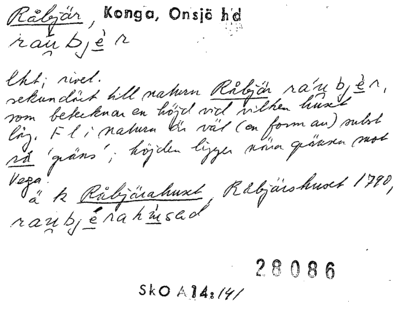 Råbjär, Konga, Onsjö hd
raúbjèr
lht; rivet.
sekundärt till naturn Råbjär raúbjèr,
som betecknar en höjd vid vilken huset
låg. F l i naturn är väl (en form av) subst
rå 'gräns'; höjden ligger nära gränsen mot
Vega.
ä k Råbjärahuset, Råbjärshuset 1790,
28086
SkO A14:141